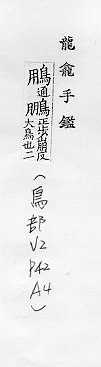 龍龕手鑑
通鵬正步崩反
大鳥也二
(鳥部 V2 P42 A4)